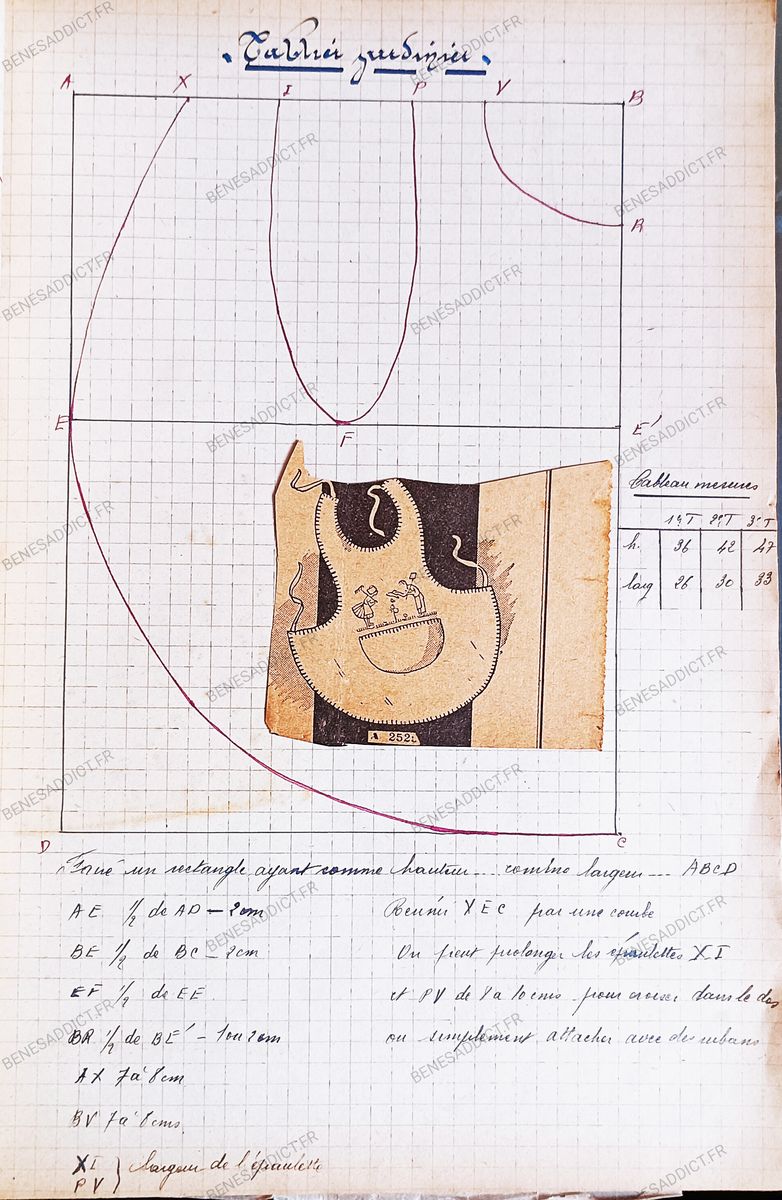 Tablier jardinier
A X I P V B
R
E F E'
Tableau mesures
1er T 2e T 3e T
h. 36 42 47
larg 26 30 33
A 252
D C
Faire un rectangle ayant comme hauteur ... comme largeur ... ABCD
AE 1/2 de AD - 2cm
BE 1/2 de BC - 2cm
EF 1/2 de EE
BR 1/2 de BE' - 1 ou 2cm
AX 7 à 8cm
BV 7 à 8cms.
XI } largeur de l'épaulette
PV
Réunir XEC par une courbe
On peut prolonger les épaulettes XI
et PV de 8 à 10cms pour croiser dans le dos
ou simplement attacher avec des rubans
BENESADDICT.FR